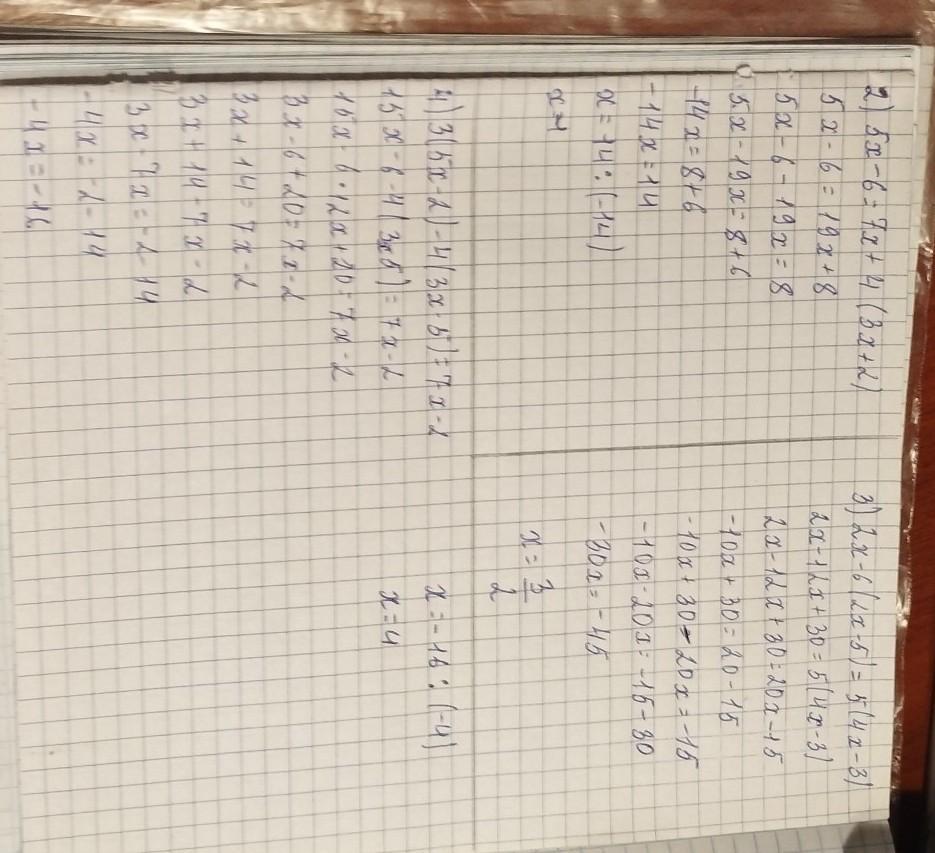 2) 5x-6=7x+4(3x+2)
5x-6=19x+8
5x-6-19x=8
5x-19x=8+6
-14x=8+6
-14x=14
x=14:(-14)
x=-1
3) 2x-6(2x-5)=5(4x-3)
2x-12x+30=5(4x-3)
2x-12x+30=20x-15
-10x+30=20-15
-10x+30-20x=-15
-10x-20x=-15-30
-30x=-45
x=3/2
4) 3(5x-2)-4(3x-5)=7x-2
15x-6-4(3x5)=7x-2
15x-6-12x+20=7x-2
3x-6+20=7x-2
3x+14=7x-2
3x+14-7x-2
3x-7x=-2-14
-4x=-2-14
-4x=-16
x=-16:(-4)
x=4